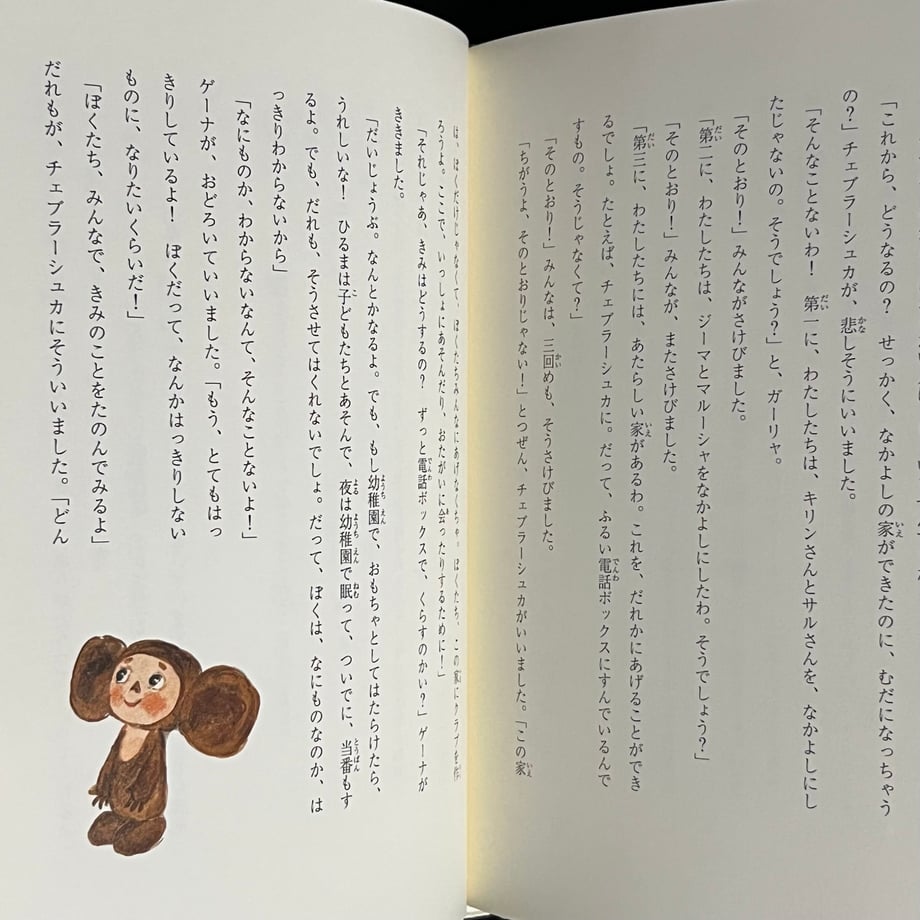 「これから、どうなるの？　せっかく、なかよしの家ができたのに、むだになっちゃう
の？」チェブラーシュカが、悲しそうにいいました。
「そんなことないわ！　第一に、わたしたちは、キリンさんとサルさんを、なかよしにし
たじゃないの。そうでしょう？」と、ガーリャ。
「そのとおり！」みんながさけびました。
「第二に、わたしたちは、ジーマとマルーシャをなかよしにしたわ。そうでしょう？」
「そのとおり！」みんなが、またさけびました。
「第三に、わたしたちには、あたらしい家があるわ。これを、だれかにあげることができ
るでしょ。たとえば、チェブラーシュカに。だって、ふるい電話ボックスにすんでいるんで
すもの。そうじゃなくて？」
「そのとおり！」みんなは、三回めも、そうさけびました。
「ちがうよ、そのとおりじゃない！」とつぜん、チェブラーシュカがいいました。「この家
は、ぼくだけじゃなくて、ぼくたちみんなにあげなくちゃ。ぼくたち、この家にクラブを作
ろうよ。ここで、いっしょにあそんだり、おたがいに会ったりするために！」
「それじゃあ、きみはどうするの？　ずっと電話ボックスで、くらすのかい？」ゲーナが
ききました。
「だいじょうぶ。なんとかなるよ。でも、もし幼稚園で、おもちゃとしてはたらけたら、
うれしいな！　ひるまは子どもたちとあそんで、夜は幼稚園で眠って、ついでに、当番もす
るよ。でも、だれも、そうさせてはくれないでしょ。だって、ぼくは、なにものなのか、は
っきりわからないから」
「なにものか、わからないなんて、そんなことないよ！」
ゲーナが、おどろいていいました。「もう、とてもはっ
きりしているよ！　ぼくだって、なんかはっきりしない
ものに、なりたいくらいだ！」
「ぼくたち、みんなで、きみのことをたのんでみるよ」
だれもが、チェブラーシュカにそういいました。「どん